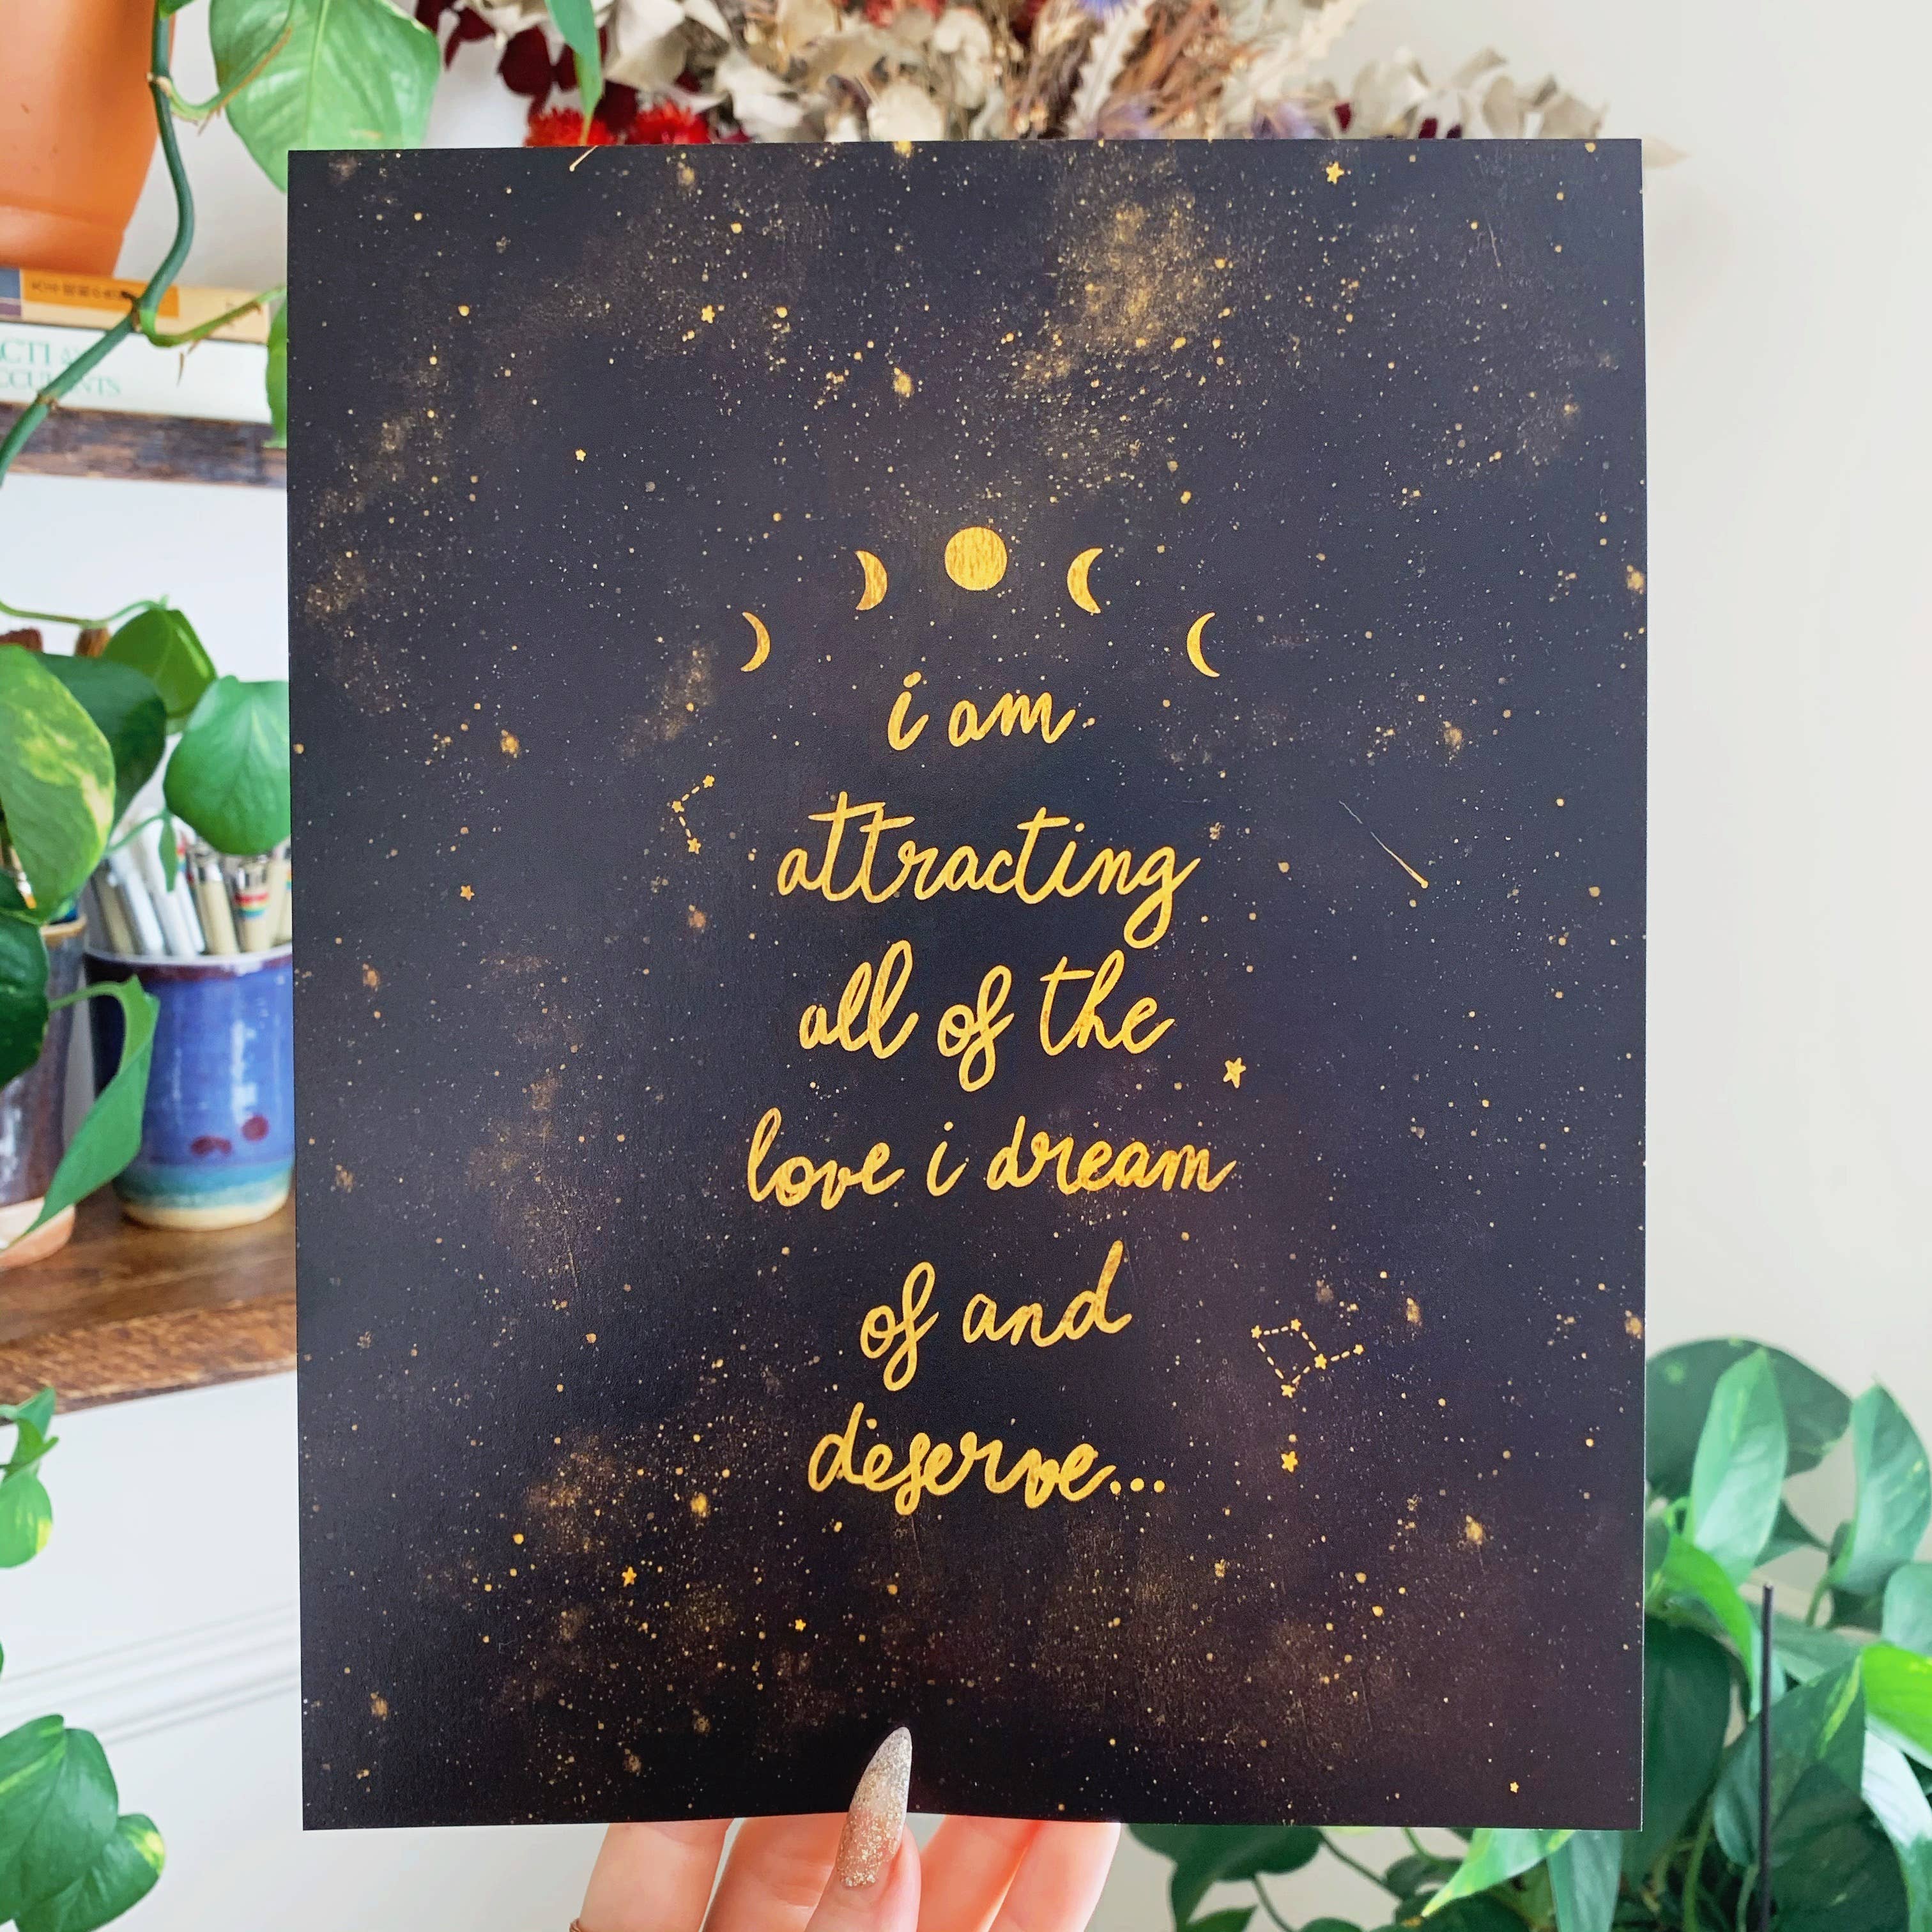 i am
attracting
all of the
love i dream
of and
deserve...